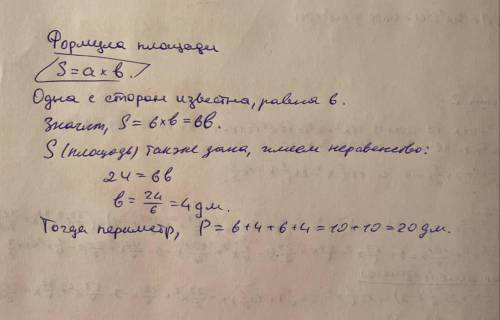 Формула площади
S = a × в.
Одна с сторон известна, равна 6.
Значит, S = 6 × в = 6в.
S (площадь) также дана, имеем неравенство:
24 = 6в
в = 24/6 = 4 дм.
Тогда периметр, P = 6 + 4 + 6 + 4 = 10 + 10 = 20 дм.